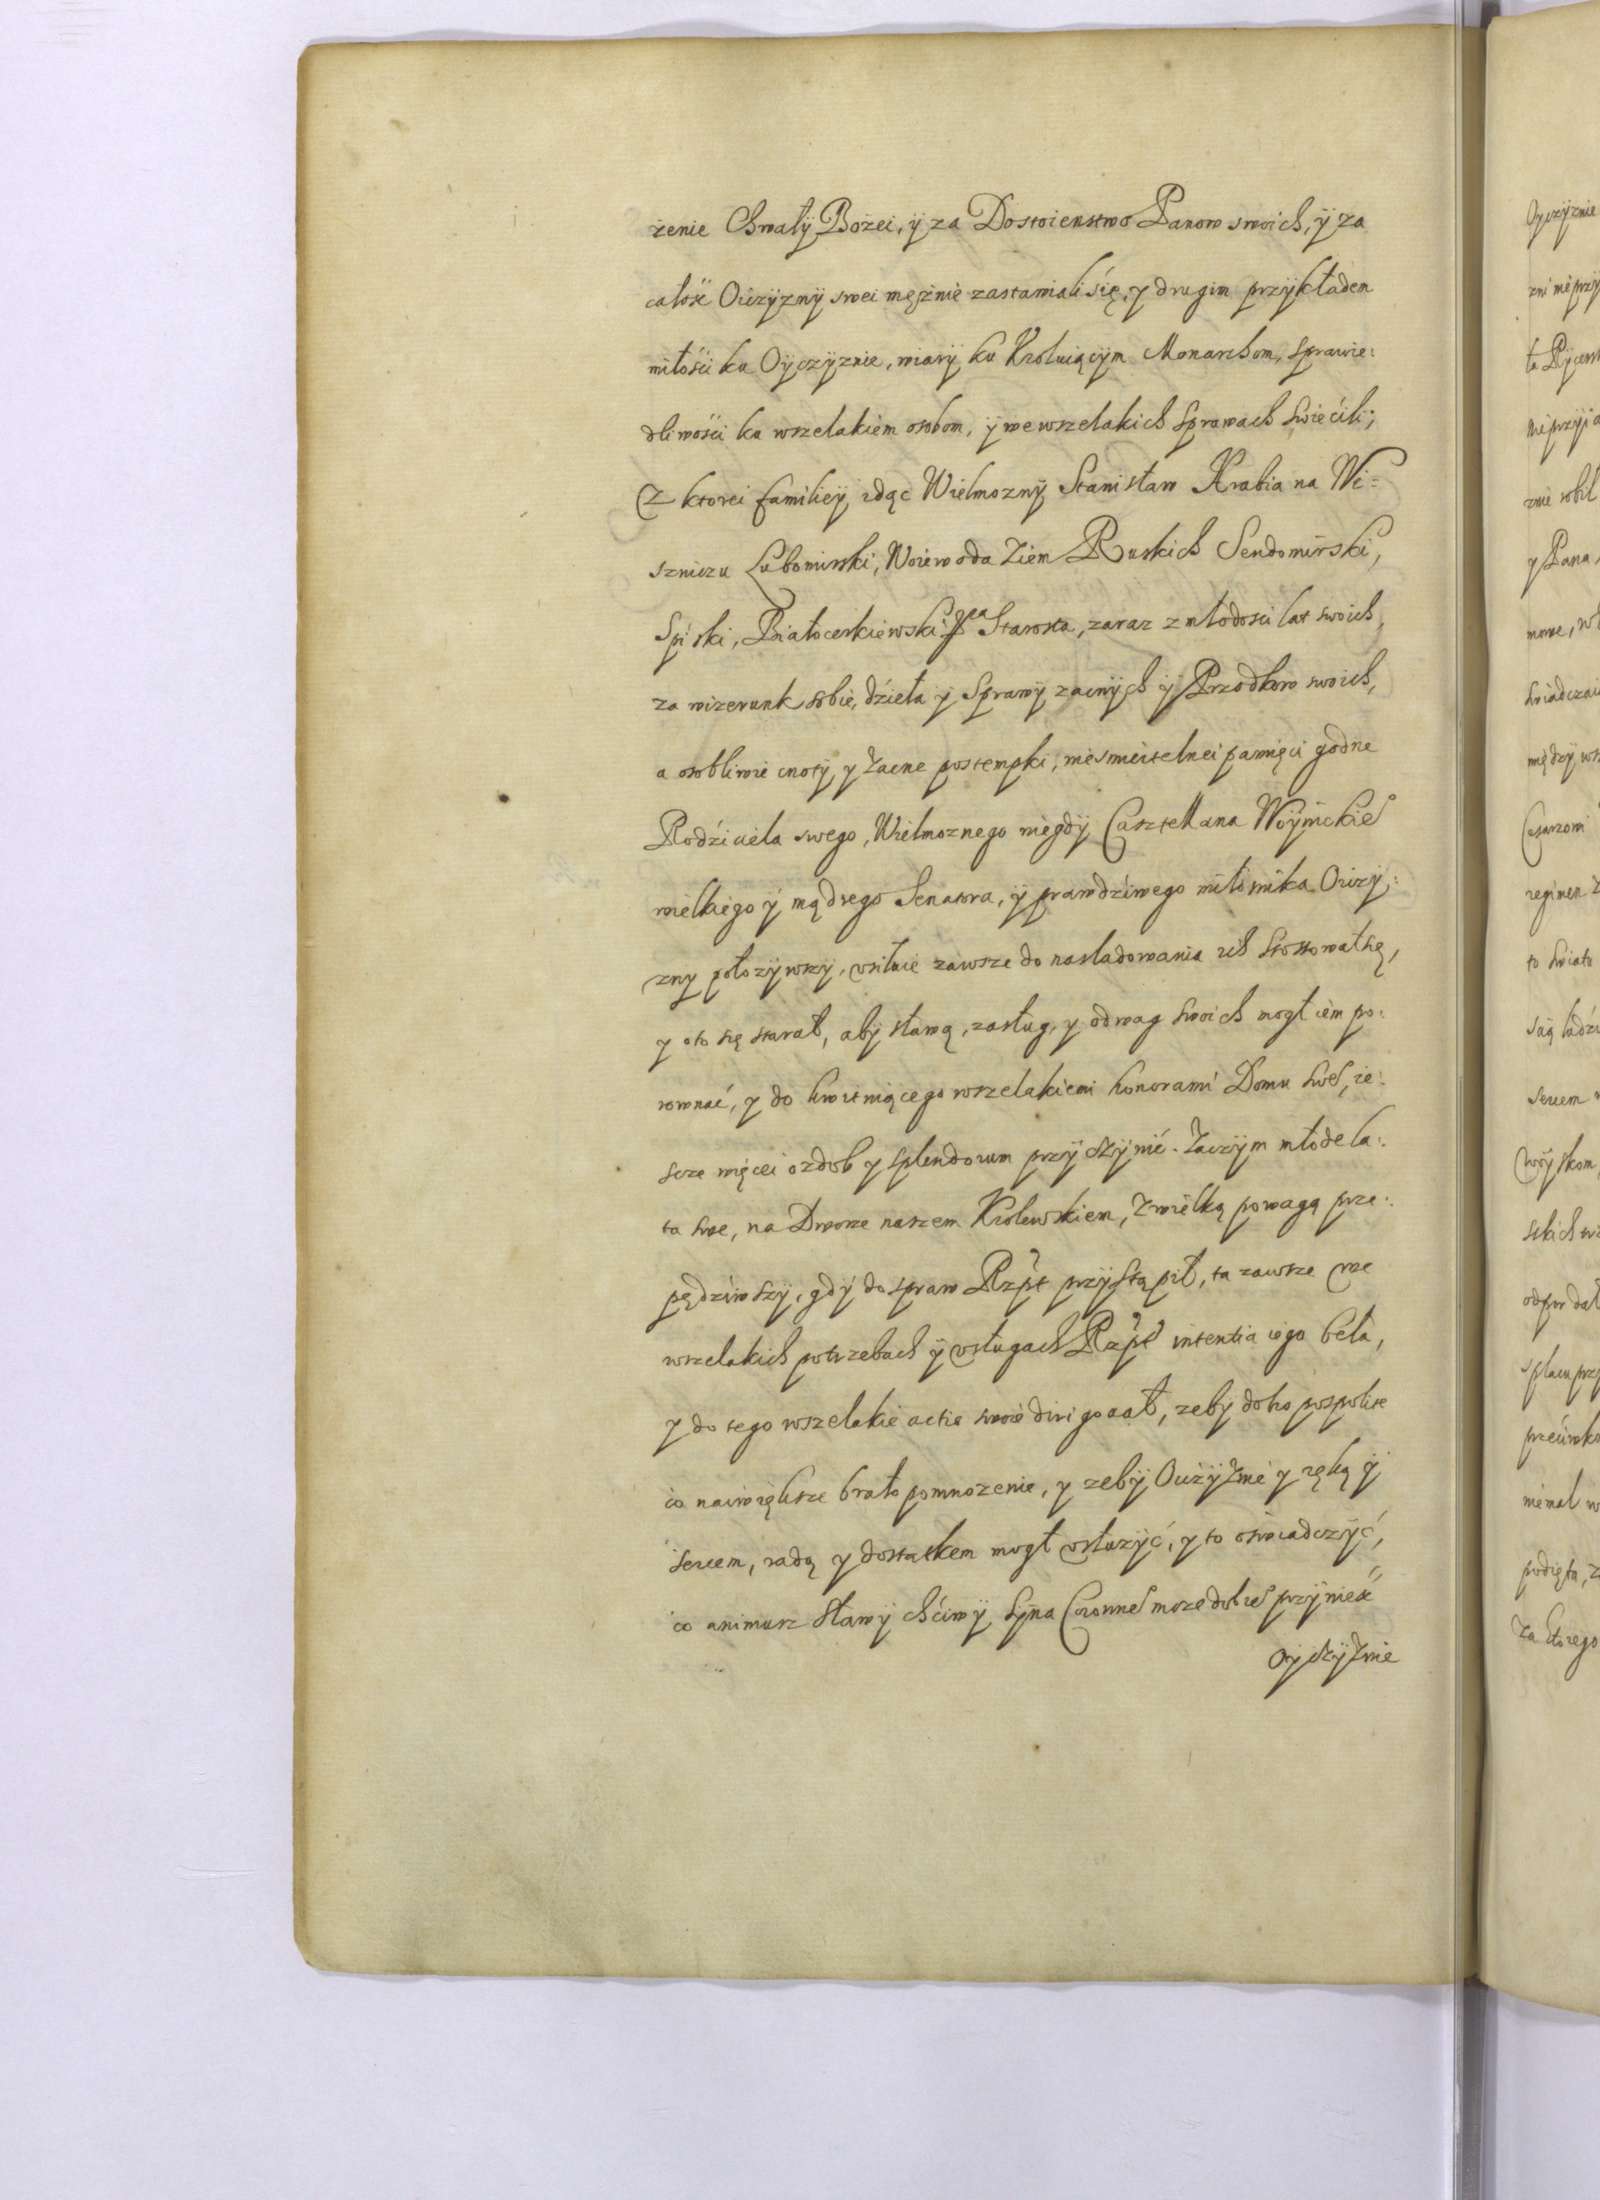 rzenie Chwały Bożei, ÿ za Dostoienstwo Panow swoich, ÿ za
całość Oiczÿznÿ swei mężnie zastawiali się, y drugim przÿkładem
miłości ku Oÿczÿznie, wiarÿ ku Kroluiącÿm Monarchom, sprawie:
dliwości ku wszelakiem osobom, ÿ we wszelakich sprawach świecili;
Z ktorei familieÿ idąc Wielmoznÿ Stanisław Hrabia na Wi=
szniczu Lubomirski, Woiewoda Ziem Ruskich Sendomirski,
Spiski, Białocerkiewski Starosta, zaraz z młodosci lat swoich,
za wizerunk sobie, dzieła ÿ sprawÿ zacnÿch ÿ Przodkow swoich,
a osobliwie cnotÿ y zacne postempki, niesmiertelnei pamięci godne
Rodziciela swego, Wielmoznego niegdÿ Casztellana Woÿnickie
wielkiego ÿ mądrego Senatora, ÿ prawdziwego miłosnika Oiczÿ:
zny położÿwszÿ, vsilnie zawsze do nasladowania ich stosował się,
y o to się starał, aby sławą, zasług, y odwag swoich mogł iem po:
rownać, y do kwitniącego wszelakiemi honorami Domu swe, ie:
scze więcei ozdob y splendorum przÿczÿnić. Zaczÿm młode la:
ta swe, na Dworze naszem Krolewskiem, z wielką powagą prze:
pędziwszÿ, gdÿ do spraw Rzpt przÿstąpił, ta zawsze we
wszelakich potrzebach ÿ vsługach Rzpt intentia iego beła,
y do tego wszelakie actie swoie dirigoaał, zeby dobro pospolite
co naiwiększe brało pomnozenie, y zebÿ Oiczÿznie y ręką ÿ
sercem, radą y dostatkem mogł vsłuzÿć, y to oswiadczÿć,
co animusz sławÿ chciwÿ Sÿna Coronne moze dobre przÿnieść
Oÿczÿznie